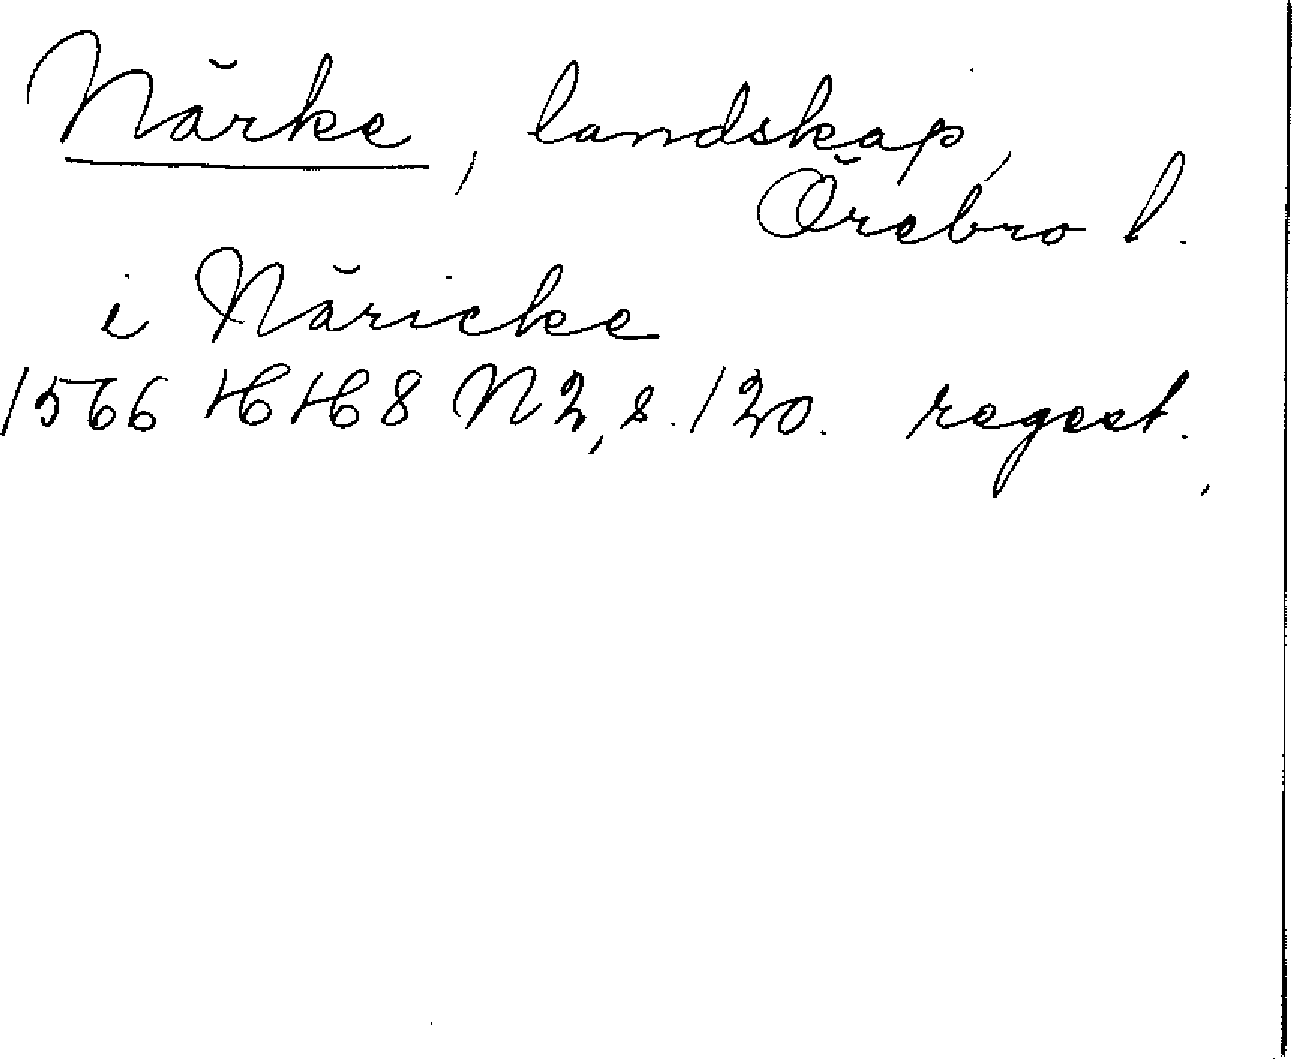 Närke, landskap,
Örebro l.
i Näricke
1566 HH 8 N 2, s. 120. regest.